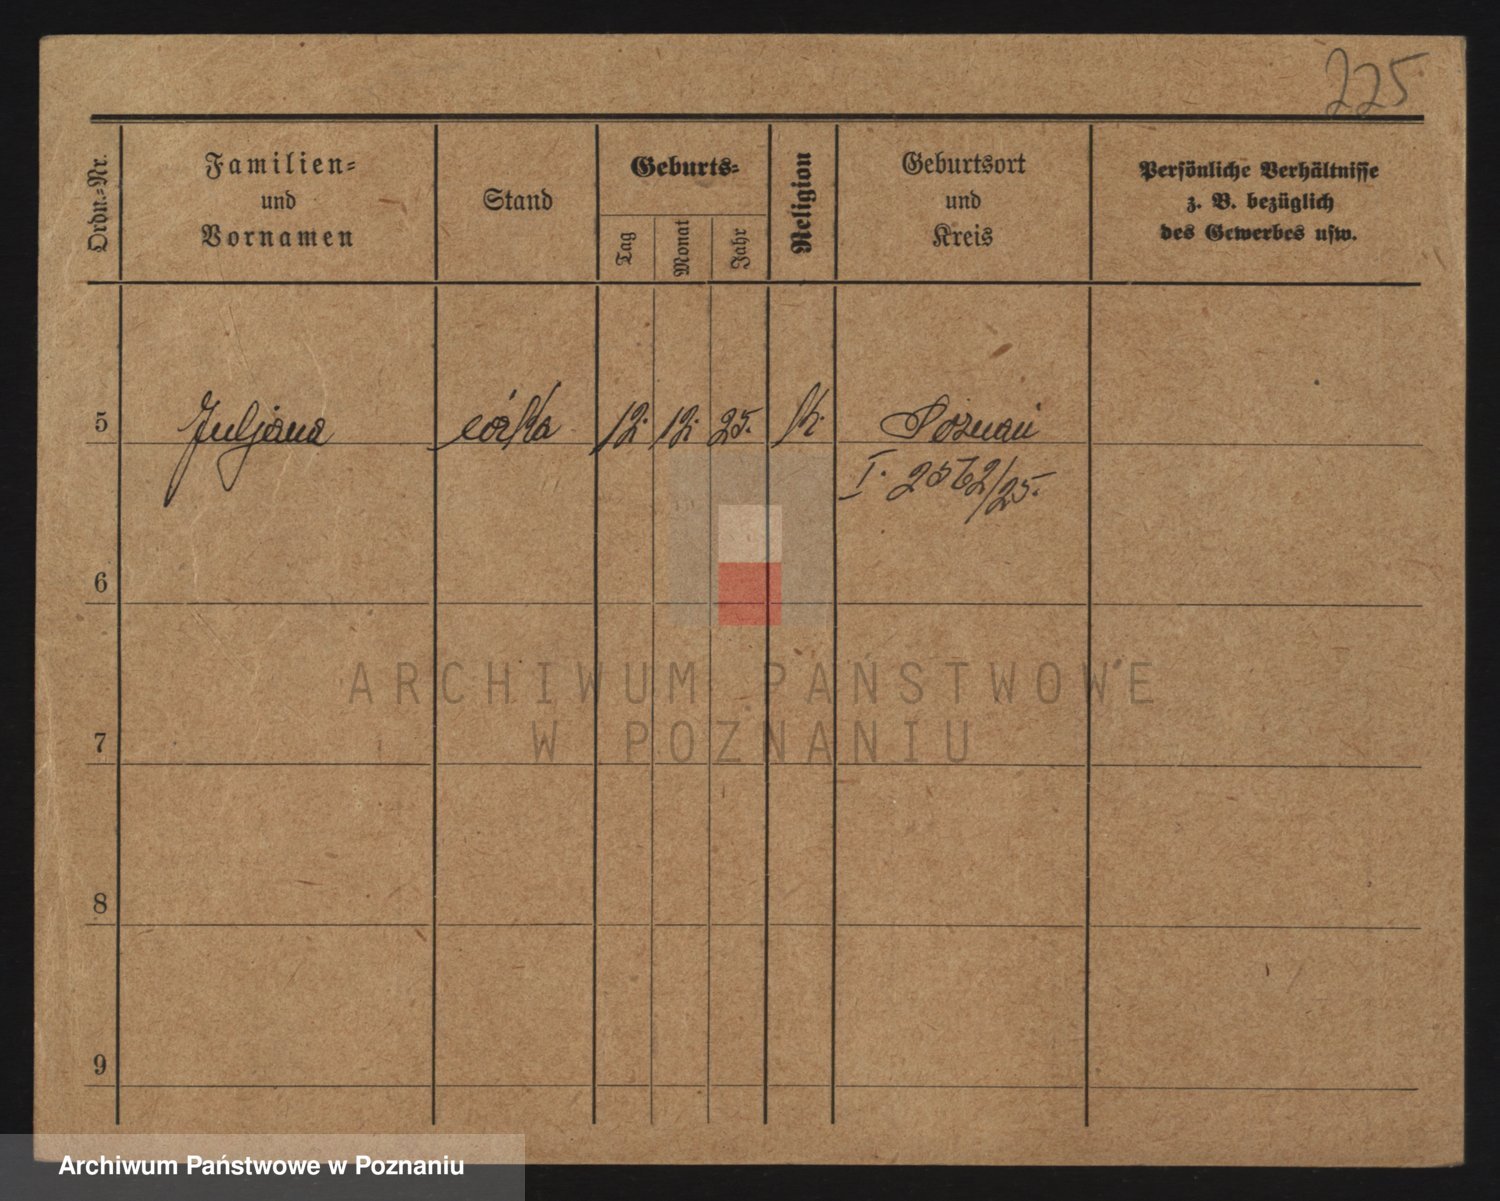 225
Ordn.-Nr.
Familien-
und
Vornamen
Stand
Geburts-
Tag
Monat
Jahr
Religion
Geburtsort
und
Kreis
Persönliche Verhältnisse
z. B. bezüglich
des Gewerbes usw.
5 Juljana córka 12. 12. 25. k. Poznań
I. 2562/25.
6
7
8
9
ARCHIWUM PAŃSTWOWE
W POZNANIU
Archiwum Państwowe w Poznaniu